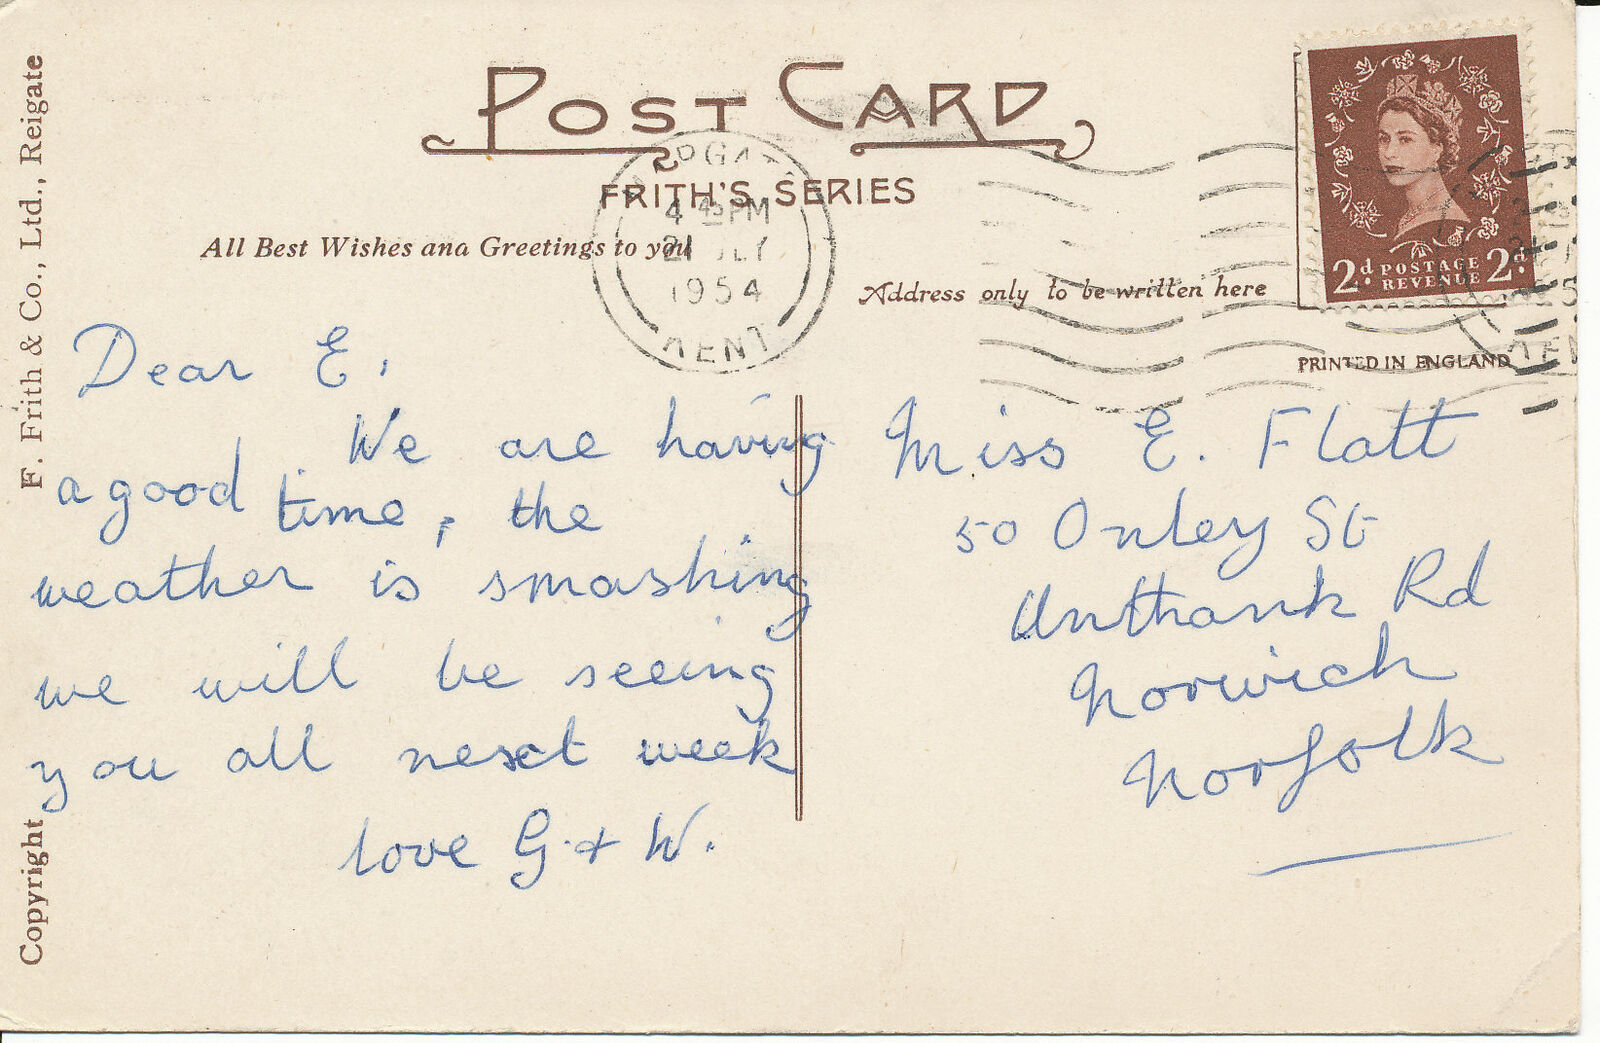 POST CARD
FRITH'S SERIES
All Best Wishes and Greetings to you
Address only to be written here
PRINTED IN ENGLAND
2d POSTAGE REVENUE 2d.
4 45 PM
21 JLY
1954
KENT
Copyright F. Frith & Co., Ltd., Reigate
Dear E,
We are having
a good time, the
weather is smashing
we will be seeing
you all next week
love G. + W.
Miss E. Flatt
50 Onley St
Unthank Rd
Norwich
Norfolk